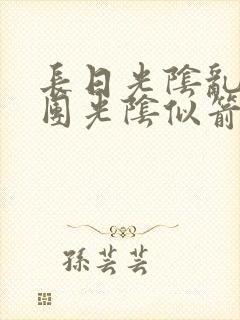 長日光陰亂
團光陰似箭
孫芸芸